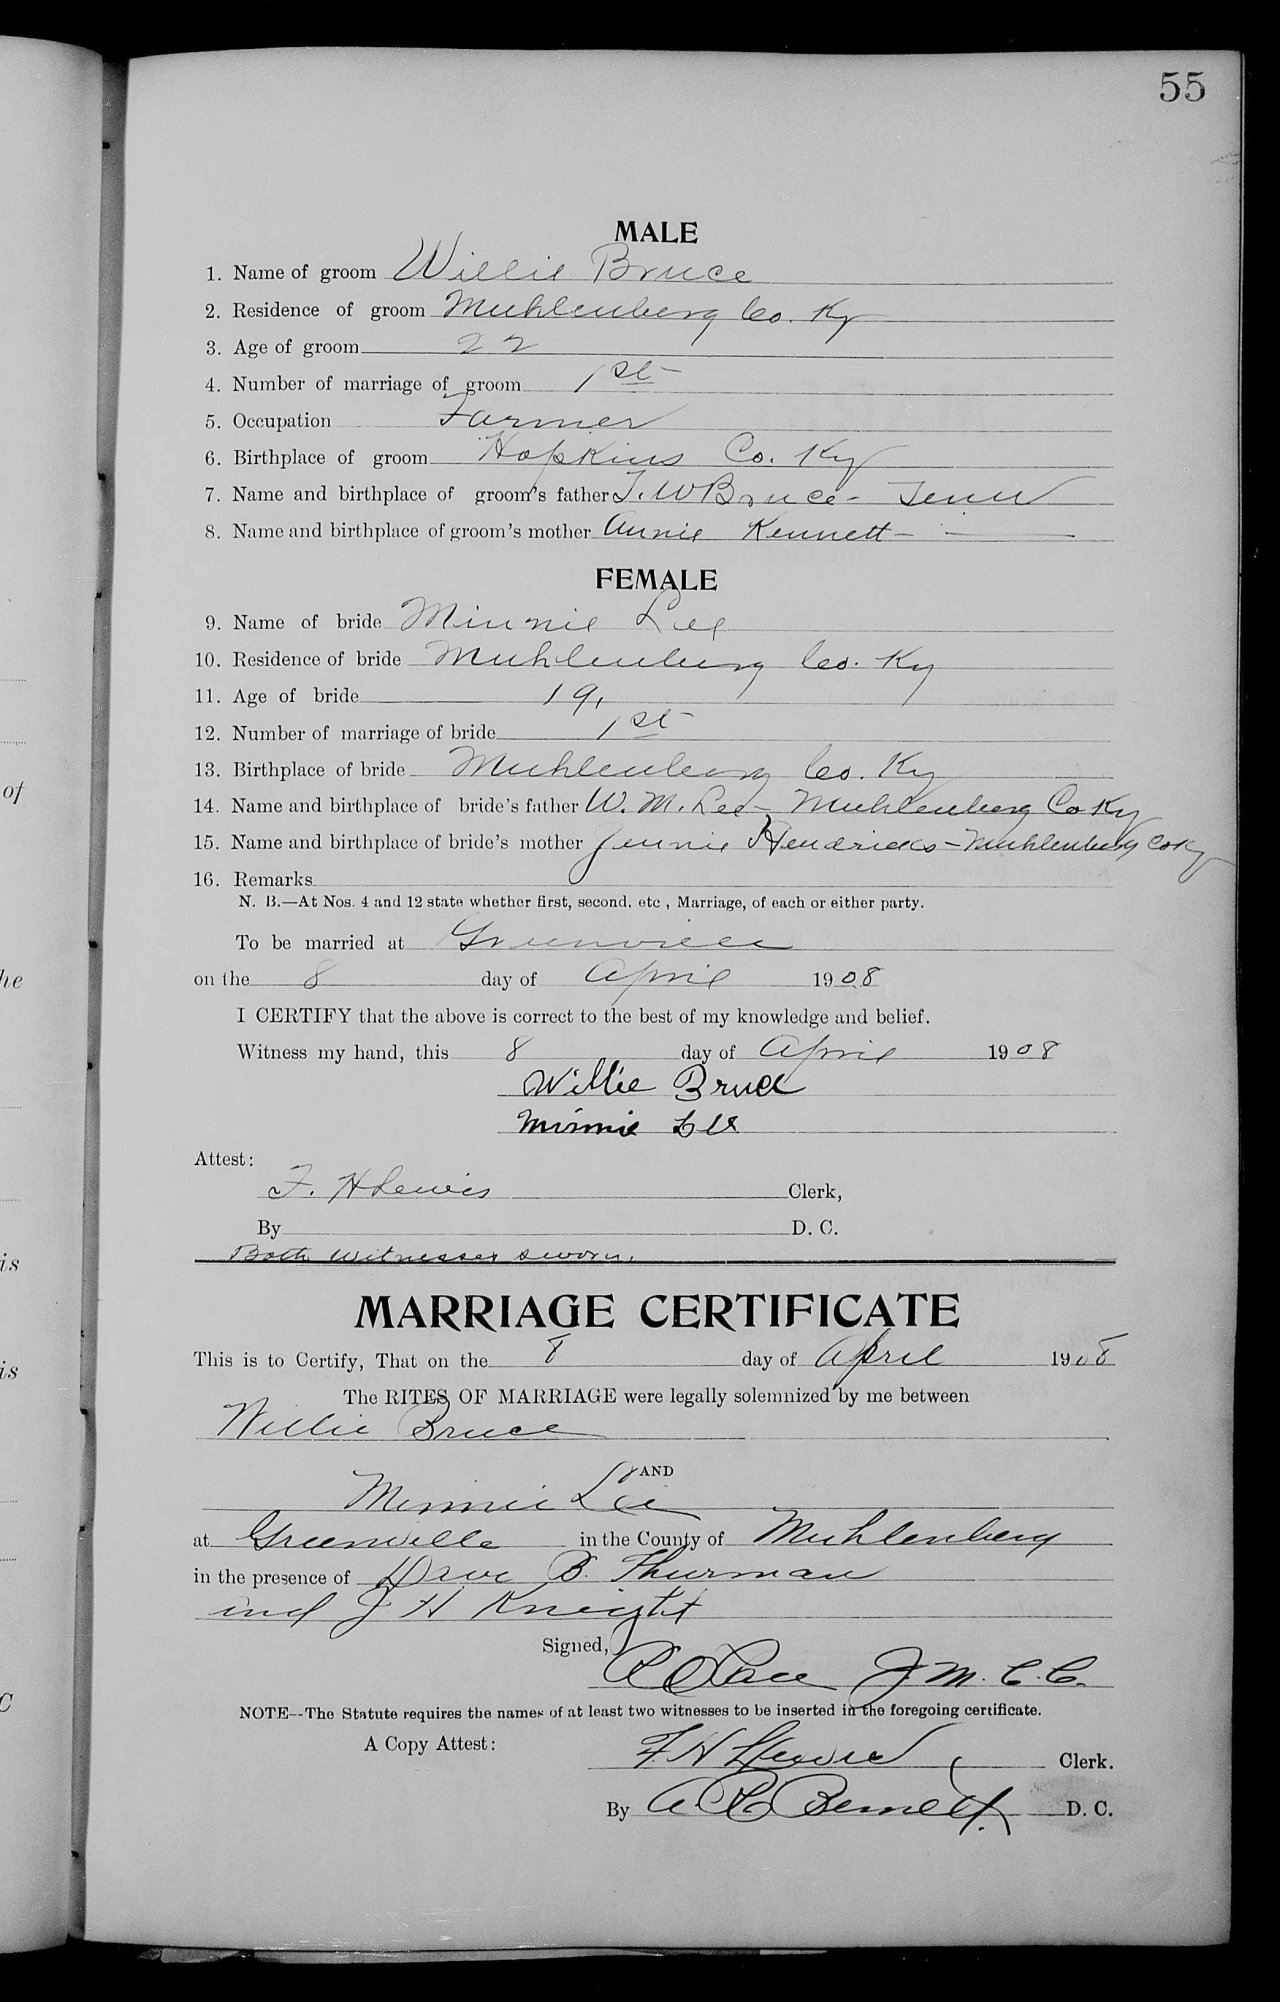 55
MALE
1. Name of groom Willie Bruce
2. Residence of groom Muhlenberg Co. Ky
3. Age of groom 22
4. Number of marriage of groom 1st
5. Occupation Farmer
6. Birthplace of groom Hopkins Co. Ky
7. Name and birthplace of groom's father T. W Bruce - Tenn
8. Name and birthplace of groom's mother Annie Kennett - -
FEMALE
9. Name of bride Minnie Lee
10. Residence of bride Muhlenberg Co. Ky
11. Age of bride 19,
12. Number of marriage of bride 1st
13. Birthplace of bride Muhlenberg Co. Ky
14. Name and birthplace of bride's father W. M. Lee - Muhlenberg Co Ky
15. Name and birthplace of bride's mother Jennie Hendricks - Muhlenberg Co Ky
16. Remarks
N. B.—At Nos. 4 and 12 state whether first, second, etc , Marriage, of each or either party.
To be married at Greenville
on the 8 day of April 1908
I CERTIFY that the above is correct to the best of my knowledge and belief.
Witness my hand, this 8 day of April 1908
Willie Bruce
Minnie Lee
Attest:
F. H Lewis Clerk,
By D. C.
Both Witnesses sworn.
MARRIAGE CERTIFICATE
This is to Certify, That on the 8 day of April 1908
The RITES OF MARRIAGE were legally solemnized by me between
Willie Bruce
AND
Minnie Lee
at Greenville in the County of Muhlenberg
in the presence of Dave B. Thurman
and J H Knight
Signed, J. M. C. C.
NOTE--The Statute requires the names of at least two witnesses to be inserted in the foregoing certificate.
A Copy Attest:
F. H Lewis Clerk.
By A. C Bennett. D. C.
of
he
is
is
C